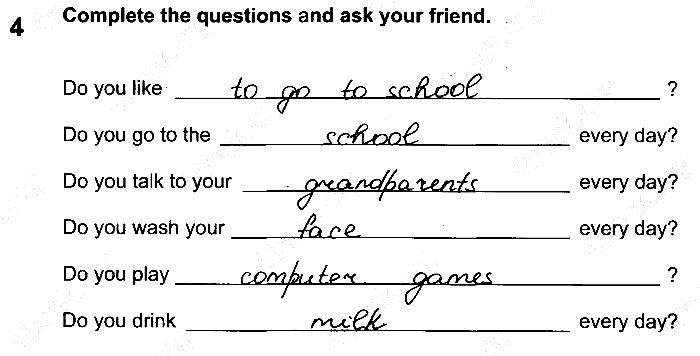 4 Complete the questions and ask your friend.
Do you like to go to school ?
Do you go to the school every day?
Do you talk to your grandparents every day?
Do you wash your face every day?
Do you play computer games ?
Do you drink milk every day?